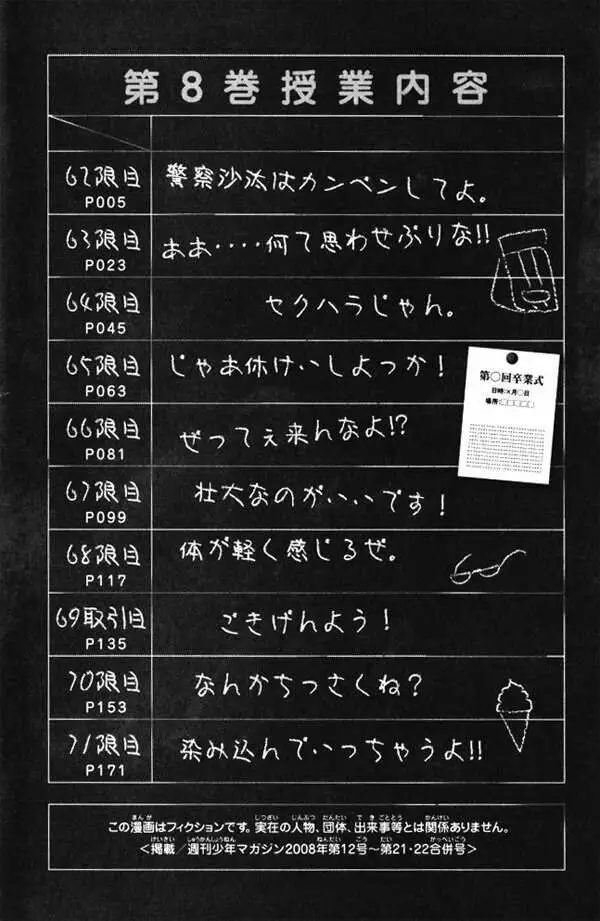 第8巻授業内容
62限目 警察沙汰はカンベンしてよ。
P005
63限目 ああ・・・・何て思わせぶりな!!
P023
64限目 セクハラじゃん。
P045
65限目 じゃあ休けいしよっか!
P063
第〇回卒業式
日時:×月〇日
場所:□□□□□
66限目 ぜってぇ来んなよ!?
P081
67限目 壮大なのがいいです!
P099
68限目 体が軽く感じるぜ。
P117
69取引目 ごきげんよう!
P135
70限目 なんかちっさくね?
P153
71限目 染み込んでいっちゃうよ!!
P171
この漫画はフィクションです。実在の人物、団体、出来事等とは関係ありません。
<掲載/週刊少年マガジン2008年第12号〜第21・22合併号>